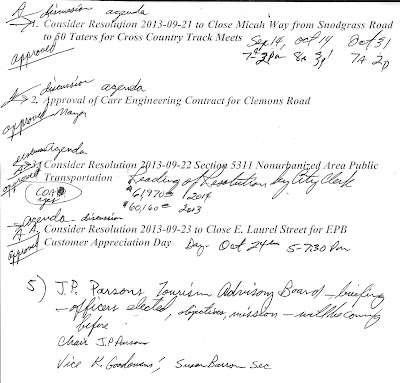 A discussion agenda
→1. Consider Resolution 2013-09-21 to Close Micah Way from Snodgrass Road
to 50 Taters for Cross Country Track Meets
Sep 14, Oct 14 Oct 31
7-2pm 8a 3p 7A 2p
approved
discussion agenda
→2. Approval of Carr Engineering Contract for Clemons Road
approved Mayor
agenda
3. Consider Resolution 2013-09-22 Section 5311 Nonurbanized Area Public
Transportation Reading of Resolution by City Clerk
approved
$61,970 2014
$60,160 2013
agenda - discussion
4. Consider Resolution 2013-09-23 to Close E. Laurel Street for EPB
Customer Appreciation Day Day - Oct 24th 5-7:30 pm
approved
5) J.P. Parsons Tourism Advisory Board - briefing
- officers elected, objectives, mission - will be coming
before
Chair J.P. Parsons
Vice K. , Susan Barrom Sec